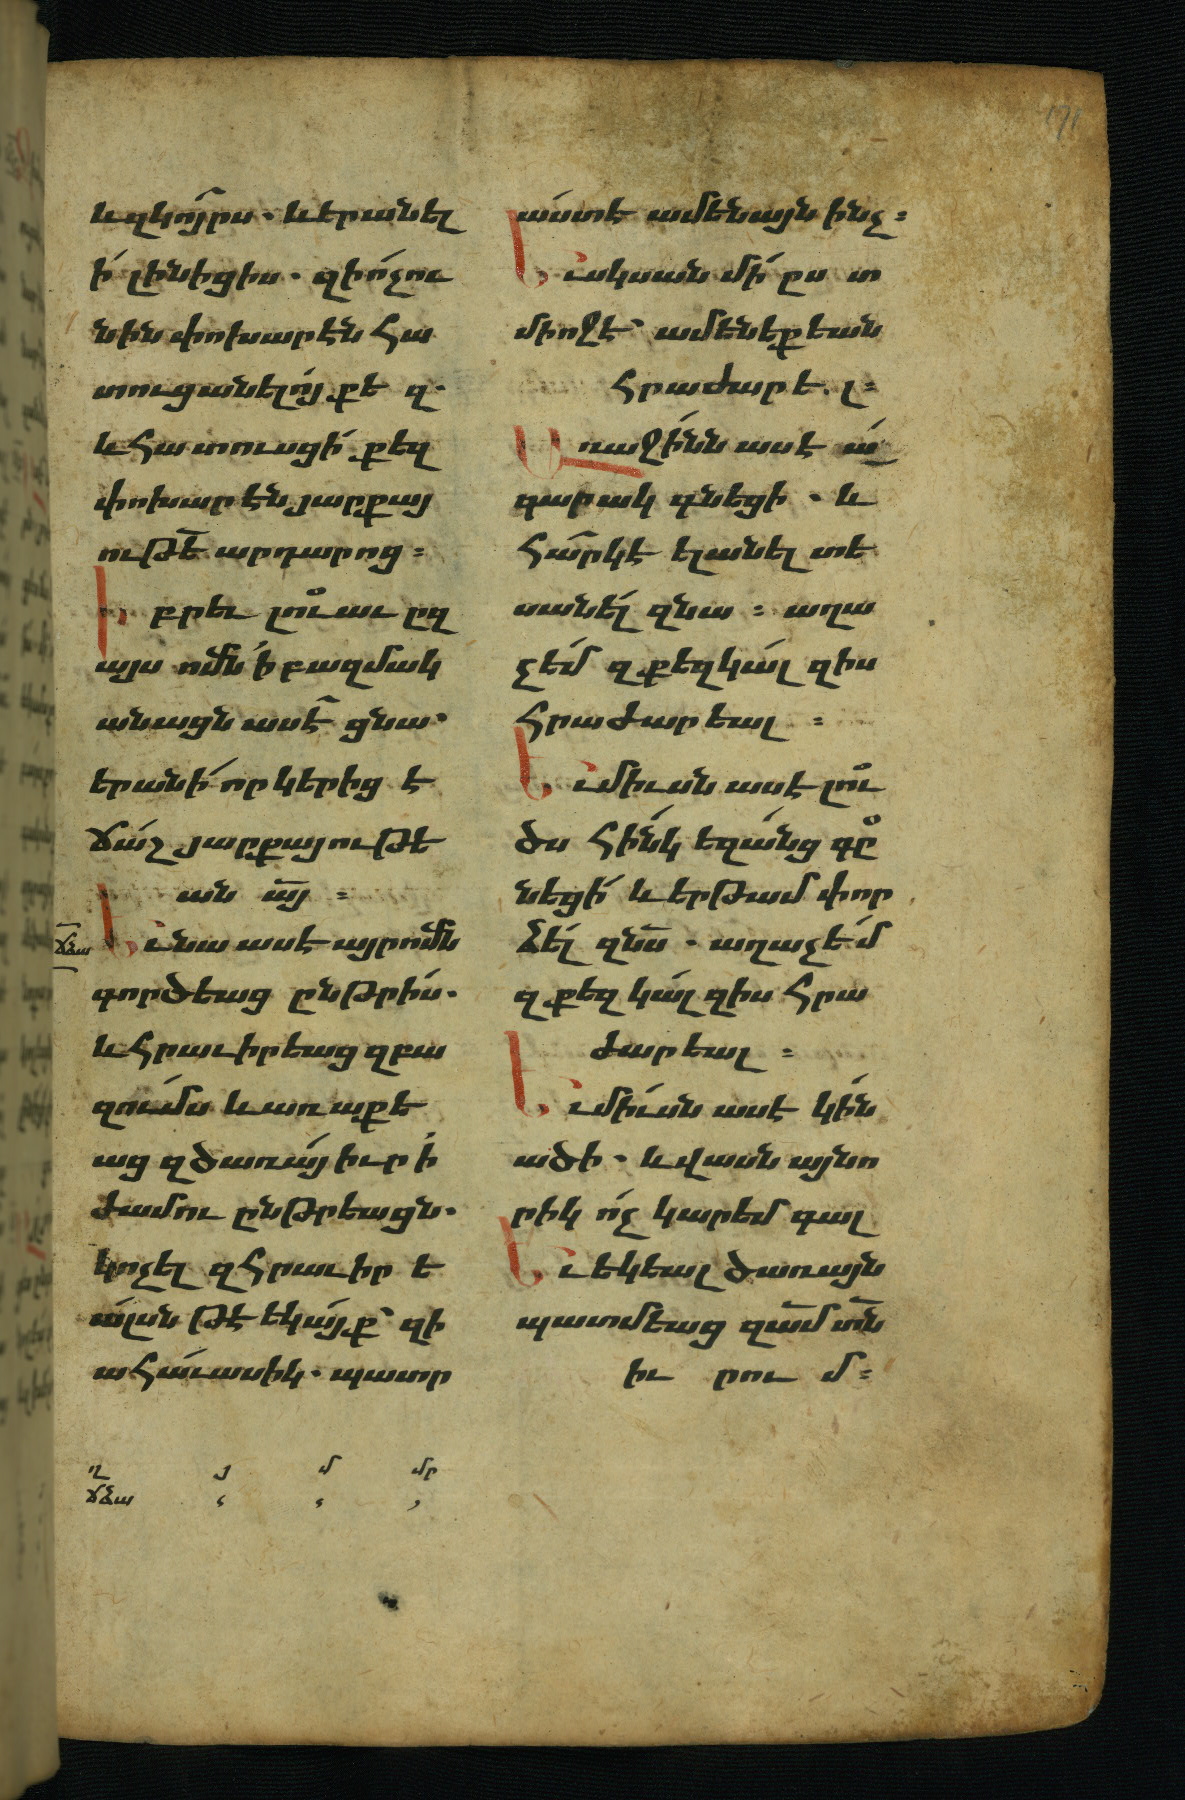 171
և զկոյրս. և երանել
ի լինիցիս. զի ոչ ու
նին փոխարէն հա
տուցանելոյ քե զ.
և հատուսցի քեզ
փոխարէն յարքայ
ութե արդարոց:
Իբրեւ լուաւ ըզ
այս ոմն ի բազմակ
անացն ասէ ցնա.
երանի որ կերից է
ճաշ յարքայութե
ան այ:
ճձա
Եւ նա ասէ այր ոմն
գործեաց ընթրիս.
և հրաւիրեաց զբա
զումս և առաքե
աց զծառայ իւր ի
ժամու ընթրեացն.
կոչել զհրաւիր ե
ալսն թէ եկայք զի
ահաւասիկ. պատր
աստէ ամենայն ինչ:
Եւ սկսան մի ըստ
միոջէ ամենեքեան
հրաժարե լ:
Առաջինն ասէ ա
գարակ գնեցի. և
հարկէ ելանել տե
սանել զնա: աղա
չեմ զքեզ կալ զիս
հրաժարեալ:
Եւ միւսն ասէ լու
ծս հինկ եզանց գը
նեցի և երթամ փոր
ձել զնս. աղաչեմ
զքեզ կալ զիս հրա
ժարեալ:
Եւ միւսն ասէ կին
ածի. և վասն այնո
րիկ ոչ կարեմ գալ
Եւ եկեալ ծառայն
պատմեաց զամ տն
իւ րում:
ղ յ մ մր
ճձա